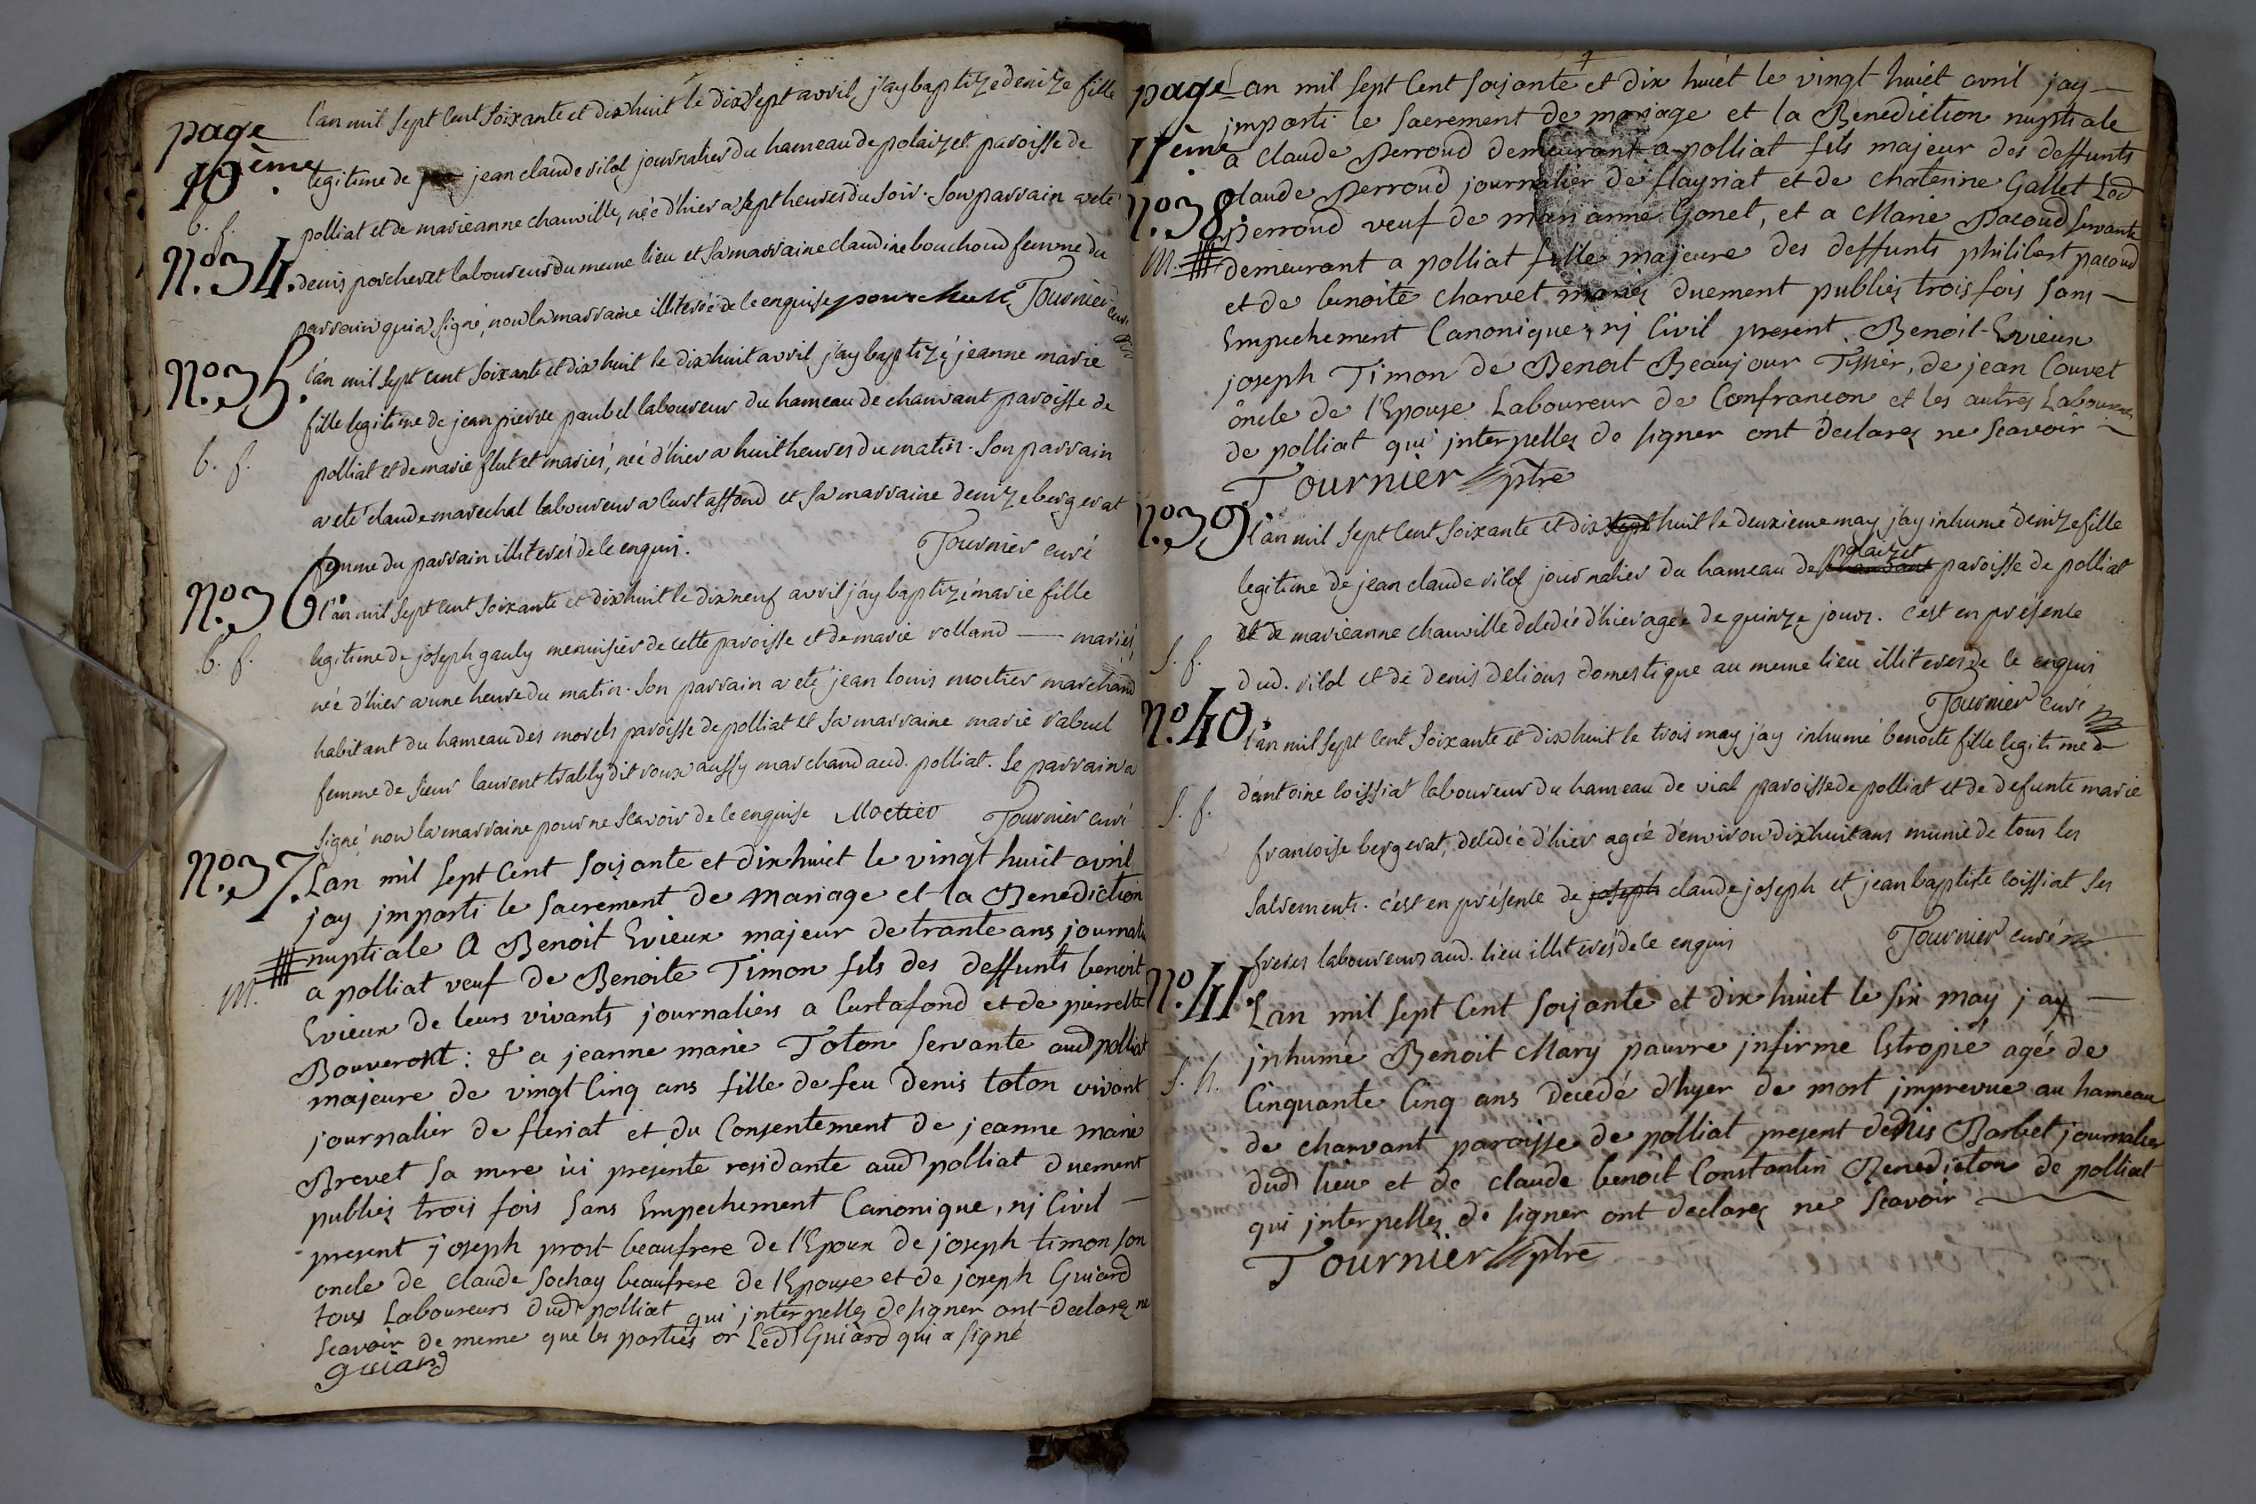 page
10ème
l'an mil sept cent soixante et dix huit le dix sept avril j'ay baptizé denize fille
legitime de jean claude vilol journalier du hameau de polaizet paroisse de
b. f.
polliat et de marieanne chanville, née d'hier a sept heures du soir. son parrain a eté
N.o 34.
denis porcheret laboureur du meme lieu et sa marraine claudine bouchoud femme du
parrain qui a signé, non la marraine illiterée de ce enquise Tournier curé
N.o 35.
l'an mil sept cent soixante et dix huit le dix huit avril j'ay baptizé jeanne marie
fille legitime de jean pierre paubel laboureur du hameau de chanvant paroisse de
b. f.
polliat et de marie flutet mariés, née d'hier a huit heures du matin. son parrain
a eté claude marechal laboureur a Curtaffond et sa marraine denize bergerat
femme du parrain illiterés de ce enquis. Tournier curé
N.o 36.
l'an mil sept cent soixante et dix huit le dix neuf avril j'ay baptizé marie fille
b. f.
legitime de joseph gauly menuisier de cette paroisse et de marie rolland — mariés,
née d'hier a une heure du matin. son parrain a eté jean louis moctier marchand
habitant du hameau des morels paroisse de polliat et sa marraine marie rabuel
femme de sieur laurent trably dit roux aussy marchand aud. polliat. le parrain a
signé non la marraine pour ne scavoir de ce enquise Moctier Tournier curé
N.o 37.
Lan mil sept Cent soixante et dix huit le vingt huit avril
jay imparti le sacrement de mariage et la Benediction
nuptiale A Benoit Evieux majeur de trante ans journalier
M.
a polliat veuf de Benoite Timon fils des deffunts benoit
Evieux de leurs vivants journaliers a Curtafond et de pierrette
Bouveront : & a jeanne marie Toton servante aud polliat
majeure de vingt Cinq ans fille de feu Denis toton vivant
journalier de fleriat et du Consentement de jeanne marie
Brevet sa mere ici presente residante aud polliat duement
publiez trois fois sans Empechement Canonique, nj Civil —
present joseph prost beaufrere de l'Epoux de joseph timon son
oncle de claude sochay beaufrere de l'Epouse et de joseph Guiard
tous Laboureurs dud polliat qui interpellez de signer ont declarez ne
scavoir de meme que les parties or Led Guiard qui a signé
guiard
page
11ème
Lan mil sept Cent soixante et dix huict le vingt huict avril jay —
jmparti le sacrement de mariage et la Benediction nuptiale
a Claude Perroud demeurant a polliat fils majeur des deffunts
N.o 38
Claude Perroud journalier de flayriat et de Chaterine Gallet Led
perroud veuf de marianne Gonet, et a Marie Pacoud servante
M.
demeurant a polliat fille majeure des deffunts philibert pacoud
et de benoite charvet mariez duement publiez trois fois sans —
Empechement Canonique, nj Civil present Benoit Evieux
joseph Timon de Benoit Beaujour Tissier, de jean Couvet
oncle de l'Epouse Laboureur de Confrancon et les autres Laboureurs
de polliat qui interpellez de signer ont declarez ne scavoir —
Tournier ptre
N.o 39
l'an mil sept cent soixante et dix sept huit le deuxieme may j'ay inhumé denize fille
polaizet
legitime de jean claude vilol journalier du hameau de paroisse de polliat
et de marieanne chanville decedée d'hier agée de quinze jours. c'est en présence
s. f.
dud. vilol et de denis delious domestique au meme lieu illiterés de ce enquis
Tournier curé
N.o 40.
l'an mil sept cent soixante et dix huit le trois may j'ay inhumé benoite fille legitime
s. f.
d'antoine loissiat laboureur du hameau de vial paroisse de polliat et de defunte marie
francoise bergerat, decedée d'hier agée d'environ dix huit ans munie de tous les
sacrements. c'est en présence de joseph claude joseph et jean baptiste loissiat ses
freres laboureurs aud. lieu illiterés de ce enquis Tournier curé
N.o 41.
Lan mil sept Cent soixante et dix huict le six may jay —
jnhumé Benoit Mary pauvre jnfirme Estropié agé de
s. h.
Cinquante Cinq ans decedé d'hyer de mort jmprevue au hameau
de charvant paroisse de polliat present denis Barbet journalier
dud lieu et de claude benoit Constantin Benedicton de polliat
qui jnterpellez de signer ont declarez ne scavoir —
Tournier ptre